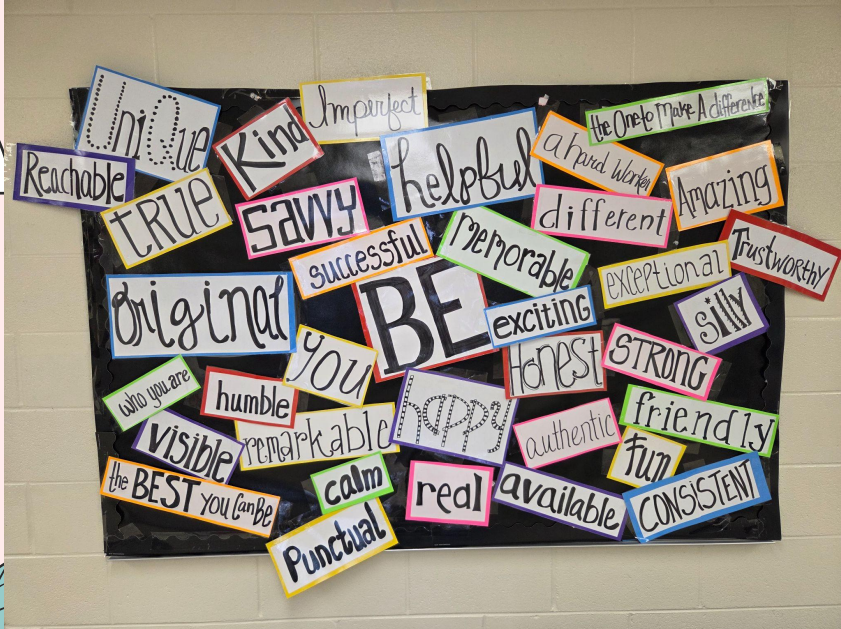 UniQue
Kind
Imperfect
the One to Make A difference
Reachable
true
Savvy
helpful
a hard worker
Amazing
different
successful
memorable
exceptional
Trustworthy
original
BE
exciting
silly
you
Honest
STRONG
who you are
humble
happy
friendly
visible
remarkable
authentic
fun
the BEST you Can Be
calm
real
available
CONSISTENT
Punctual